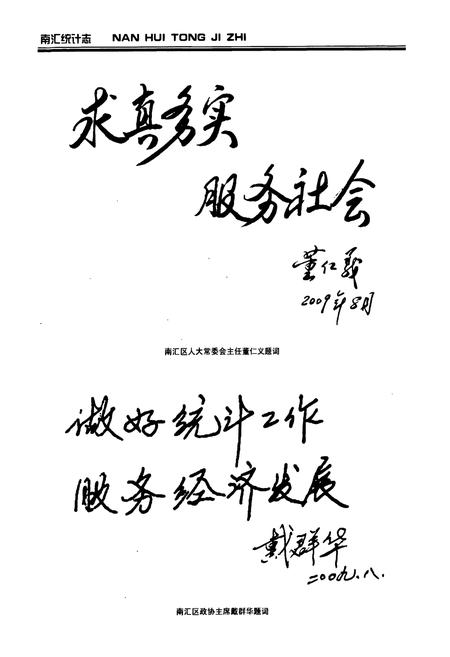 南汇统计志 NAN HUI TONG JI ZHI
求真务实
服务社会
董仁義
2009年8月
南汇区人大常委会主任董仁义题词
做好统计工作
服务经济发展
戴群华
二00九.八.
南汇区政协主席戴群华题词